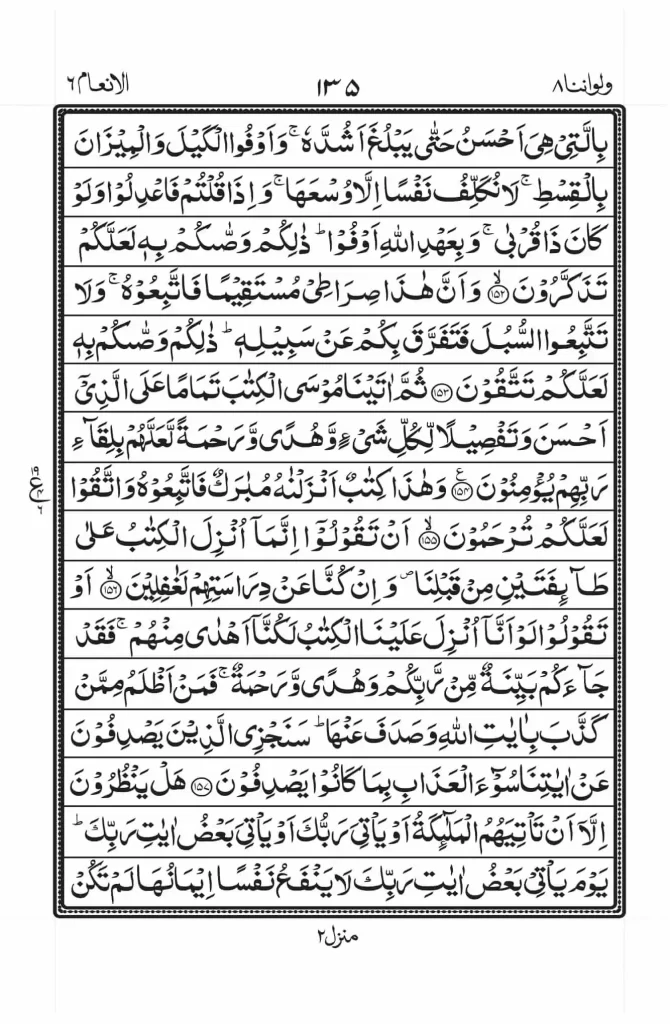 ولواننا ٨
١٣٥
الانعام ٦
بِالَّتِیْ هِیَ اَحْسَنُ حَتّٰی یَبْلُغَ اَشُدَّهٗ ۚ وَ اَوْفُوا الْكَیْلَ وَ الْمِیْزَانَ
بِالْقِسْطِ ۚ لَا نُكَلِّفُ نَفْسًا اِلَّا وُسْعَهَا ۚ وَ اِذَا قُلْتُمْ فَاعْدِلُوْا وَ لَوْ
كَانَ ذَا قُرْبٰی ۚ وَ بِعَهْدِ اللّٰهِ اَوْفُوْا ؕ ذٰلِكُمْ وَصّٰىكُمْ بِهٖ لَعَلَّكُمْ
تَذَكَّرُوْنَ ۙ﴿١٥٢﴾ وَ اَنَّ هٰذَا صِرَاطِیْ مُسْتَقِیْمًا فَاتَّبِعُوْهُ ۚ وَ لَا
تَتَّبِعُوا السُّبُلَ فَتَفَرَّقَ بِكُمْ عَنْ سَبِیْلِهٖ ؕ ذٰلِكُمْ وَصّٰىكُمْ بِهٖ
لَعَلَّكُمْ تَتَّقُوْنَ ﴿١٥٣﴾ ثُمَّ اٰتَیْنَا مُوْسَی الْكِتٰبَ تَمَامًا عَلَی الَّذِیْۤ
اَحْسَنَ وَ تَفْصِیْلًا لِّكُلِّ شَیْءٍ وَّ هُدًی وَّ رَحْمَةً لَّعَلَّهُمْ بِلِقَآءِ
رَبِّهِمْ یُؤْمِنُوْنَ ﴿١٥٤﴾ ع وَ هٰذَا كِتٰبٌ اَنْزَلْنٰهُ مُبٰرَكٌ فَاتَّبِعُوْهُ وَ اتَّقُوْا
لَعَلَّكُمْ تُرْحَمُوْنَ ۙ﴿١٥٥﴾ اَنْ تَقُوْلُوْۤا اِنَّمَاۤ اُنْزِلَ الْكِتٰبُ عَلٰی
طَآىِٕفَتَیْنِ مِنْ قَبْلِنَا ۪ وَ اِنْ كُنَّا عَنْ دِرَاسَتِهِمْ لَغٰفِلِیْنَ ۙ﴿١٥٦﴾ اَوْ
تَقُوْلُوْا لَوْ اَنَّاۤ اُنْزِلَ عَلَیْنَا الْكِتٰبُ لَكُنَّاۤ اَهْدٰی مِنْهُمْ ۚ فَقَدْ
جَآءَكُمْ بَیِّنَةٌ مِّنْ رَّبِّكُمْ وَ هُدًی وَّ رَحْمَةٌ ۚ فَمَنْ اَظْلَمُ مِمَّنْ
كَذَّبَ بِاٰیٰتِ اللّٰهِ وَ صَدَفَ عَنْهَا ؕ سَنَجْزِی الَّذِیْنَ یَصْدِفُوْنَ
عَنْ اٰیٰتِنَا سُوْٓءَ الْعَذَابِ بِمَا كَانُوْا یَصْدِفُوْنَ ﴿١٥٧﴾ هَلْ یَنْظُرُوْنَ
اِلَّاۤ اَنْ تَاْتِیَهُمُ الْمَلٰٓىِٕكَةُ اَوْ یَاْتِیَ رَبُّكَ اَوْ یَاْتِیَ بَعْضُ اٰیٰتِ رَبِّكَ ؕ
یَوْمَ یَاْتِیْ بَعْضُ اٰیٰتِ رَبِّكَ لَا یَنْفَعُ نَفْسًا اِیْمَانُهَا لَمْ تَكُنْ
منزل ٢